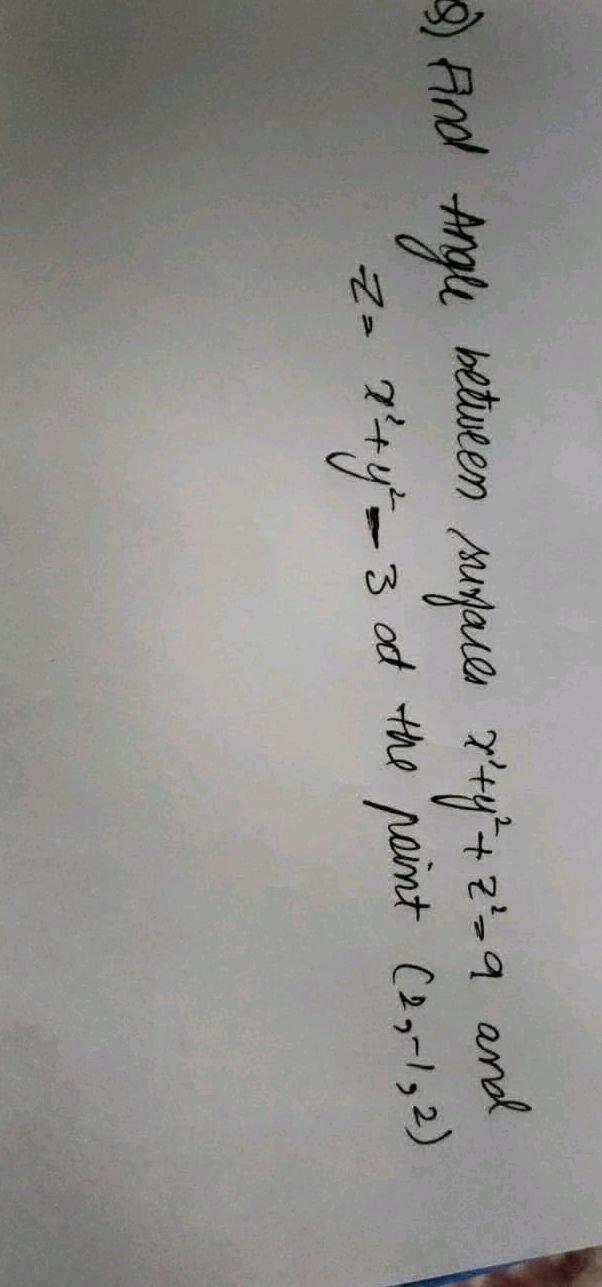 8) Find Angle between surfaces x²+y²+z²=9 and
z= x²+y²-3 at the point (2,-1,2)